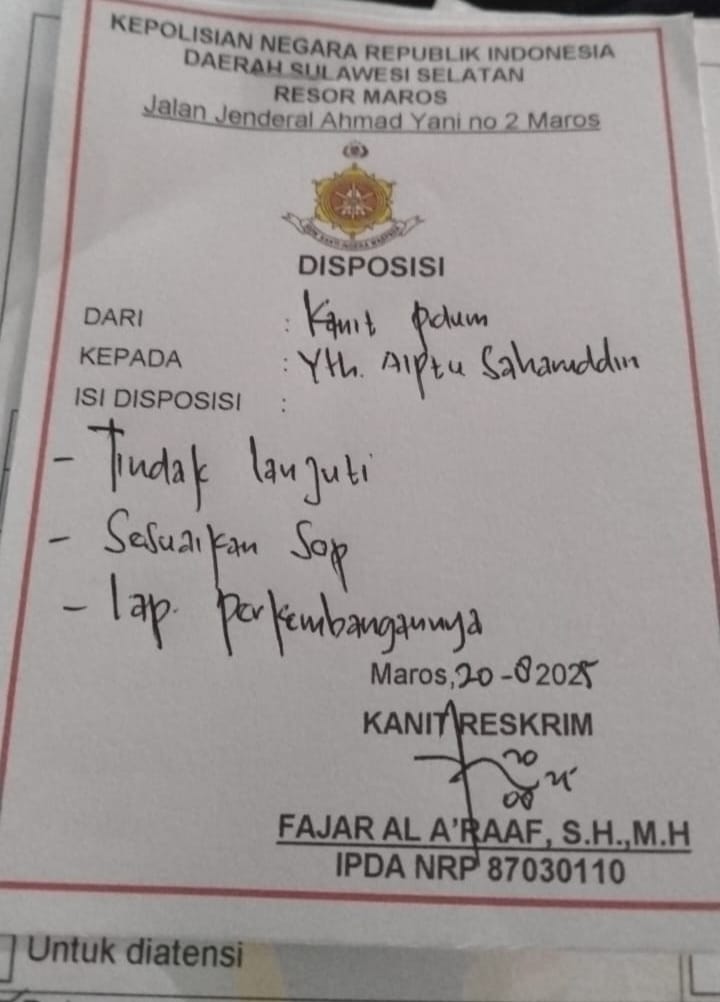 KEPOLISIAN NEGARA REPUBLIK INDONESIA
DAERAH SULAWESI SELATAN
RESOR MAROS
Jalan Jenderal Ahmad Yani no 2 Maros
DISPOSISI
DARI : Kanit Pdum
KEPADA : Yth. AIPtu Saharuddin
ISI DISPOSISI :
- Tindak lanjuti
- Sesuaikan Sop
- lap. perkembangannya
Maros, 20-8 2025
KANIT RESKRIM
20
08 25
FAJAR AL A'RAAF, S.H.,M.H
IPDA NRP 87030110
Untuk diatensi